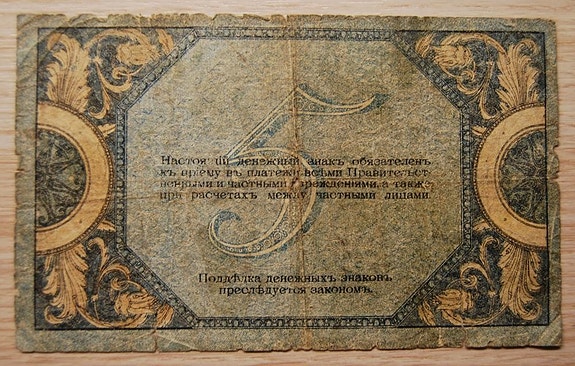 5
Настоящій денежный знакъ обязателенъ
къ пріему въ платежи всѣми Правительст-
венными и частными учрежденіями, а также
при расчетахъ между частными лицами.
Поддѣлка денежныхъ знаковъ
преслѣдуется закономъ.